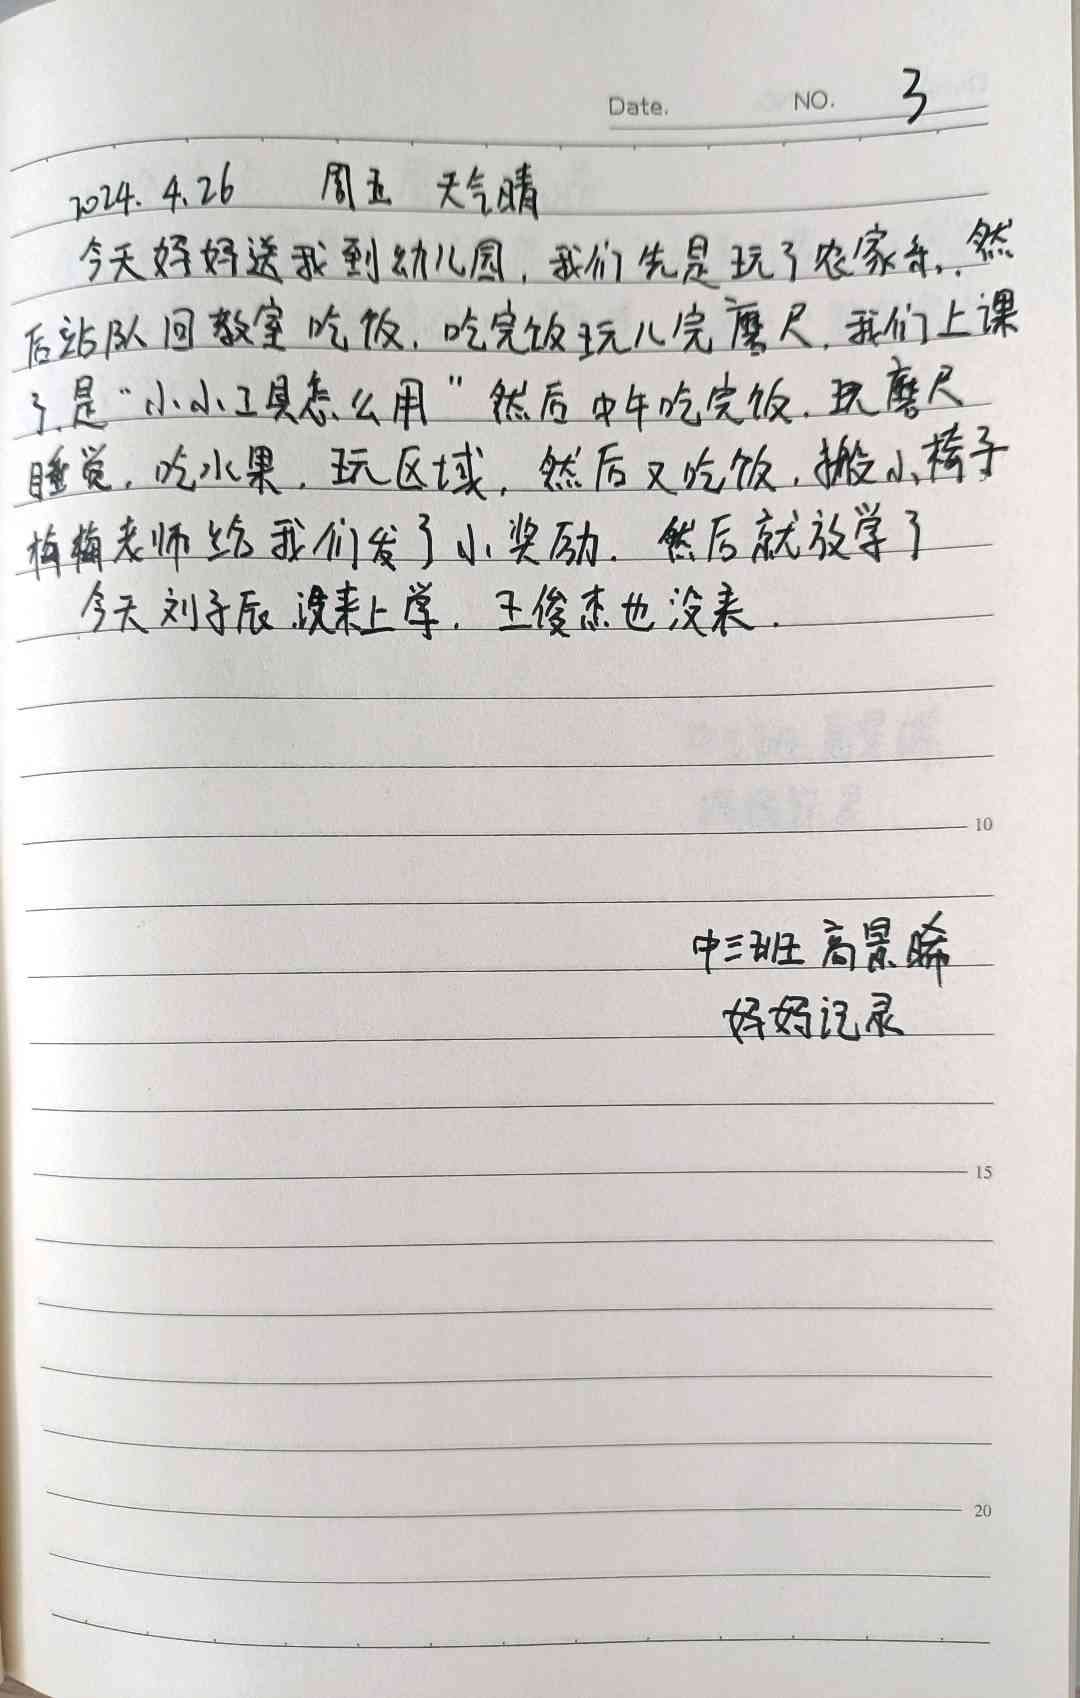 Date. NO. 3
2024.4.26 周五 天气晴
今天妈妈送我到幼儿园,我们先是玩了农家乐,然
后站队回教室吃饭,吃完饭玩儿完魔尺,我们上课
了,是“小小工具怎么用”然后中午吃完饭,玩魔尺
睡觉,吃水果,玩区域,然后又吃饭,搬小椅子
梅梅老师给我们发了小奖励.然后就放学了
今天刘子辰没来上学.王俊杰也没来.
10
中三班 高景晞
妈妈记录
15
20